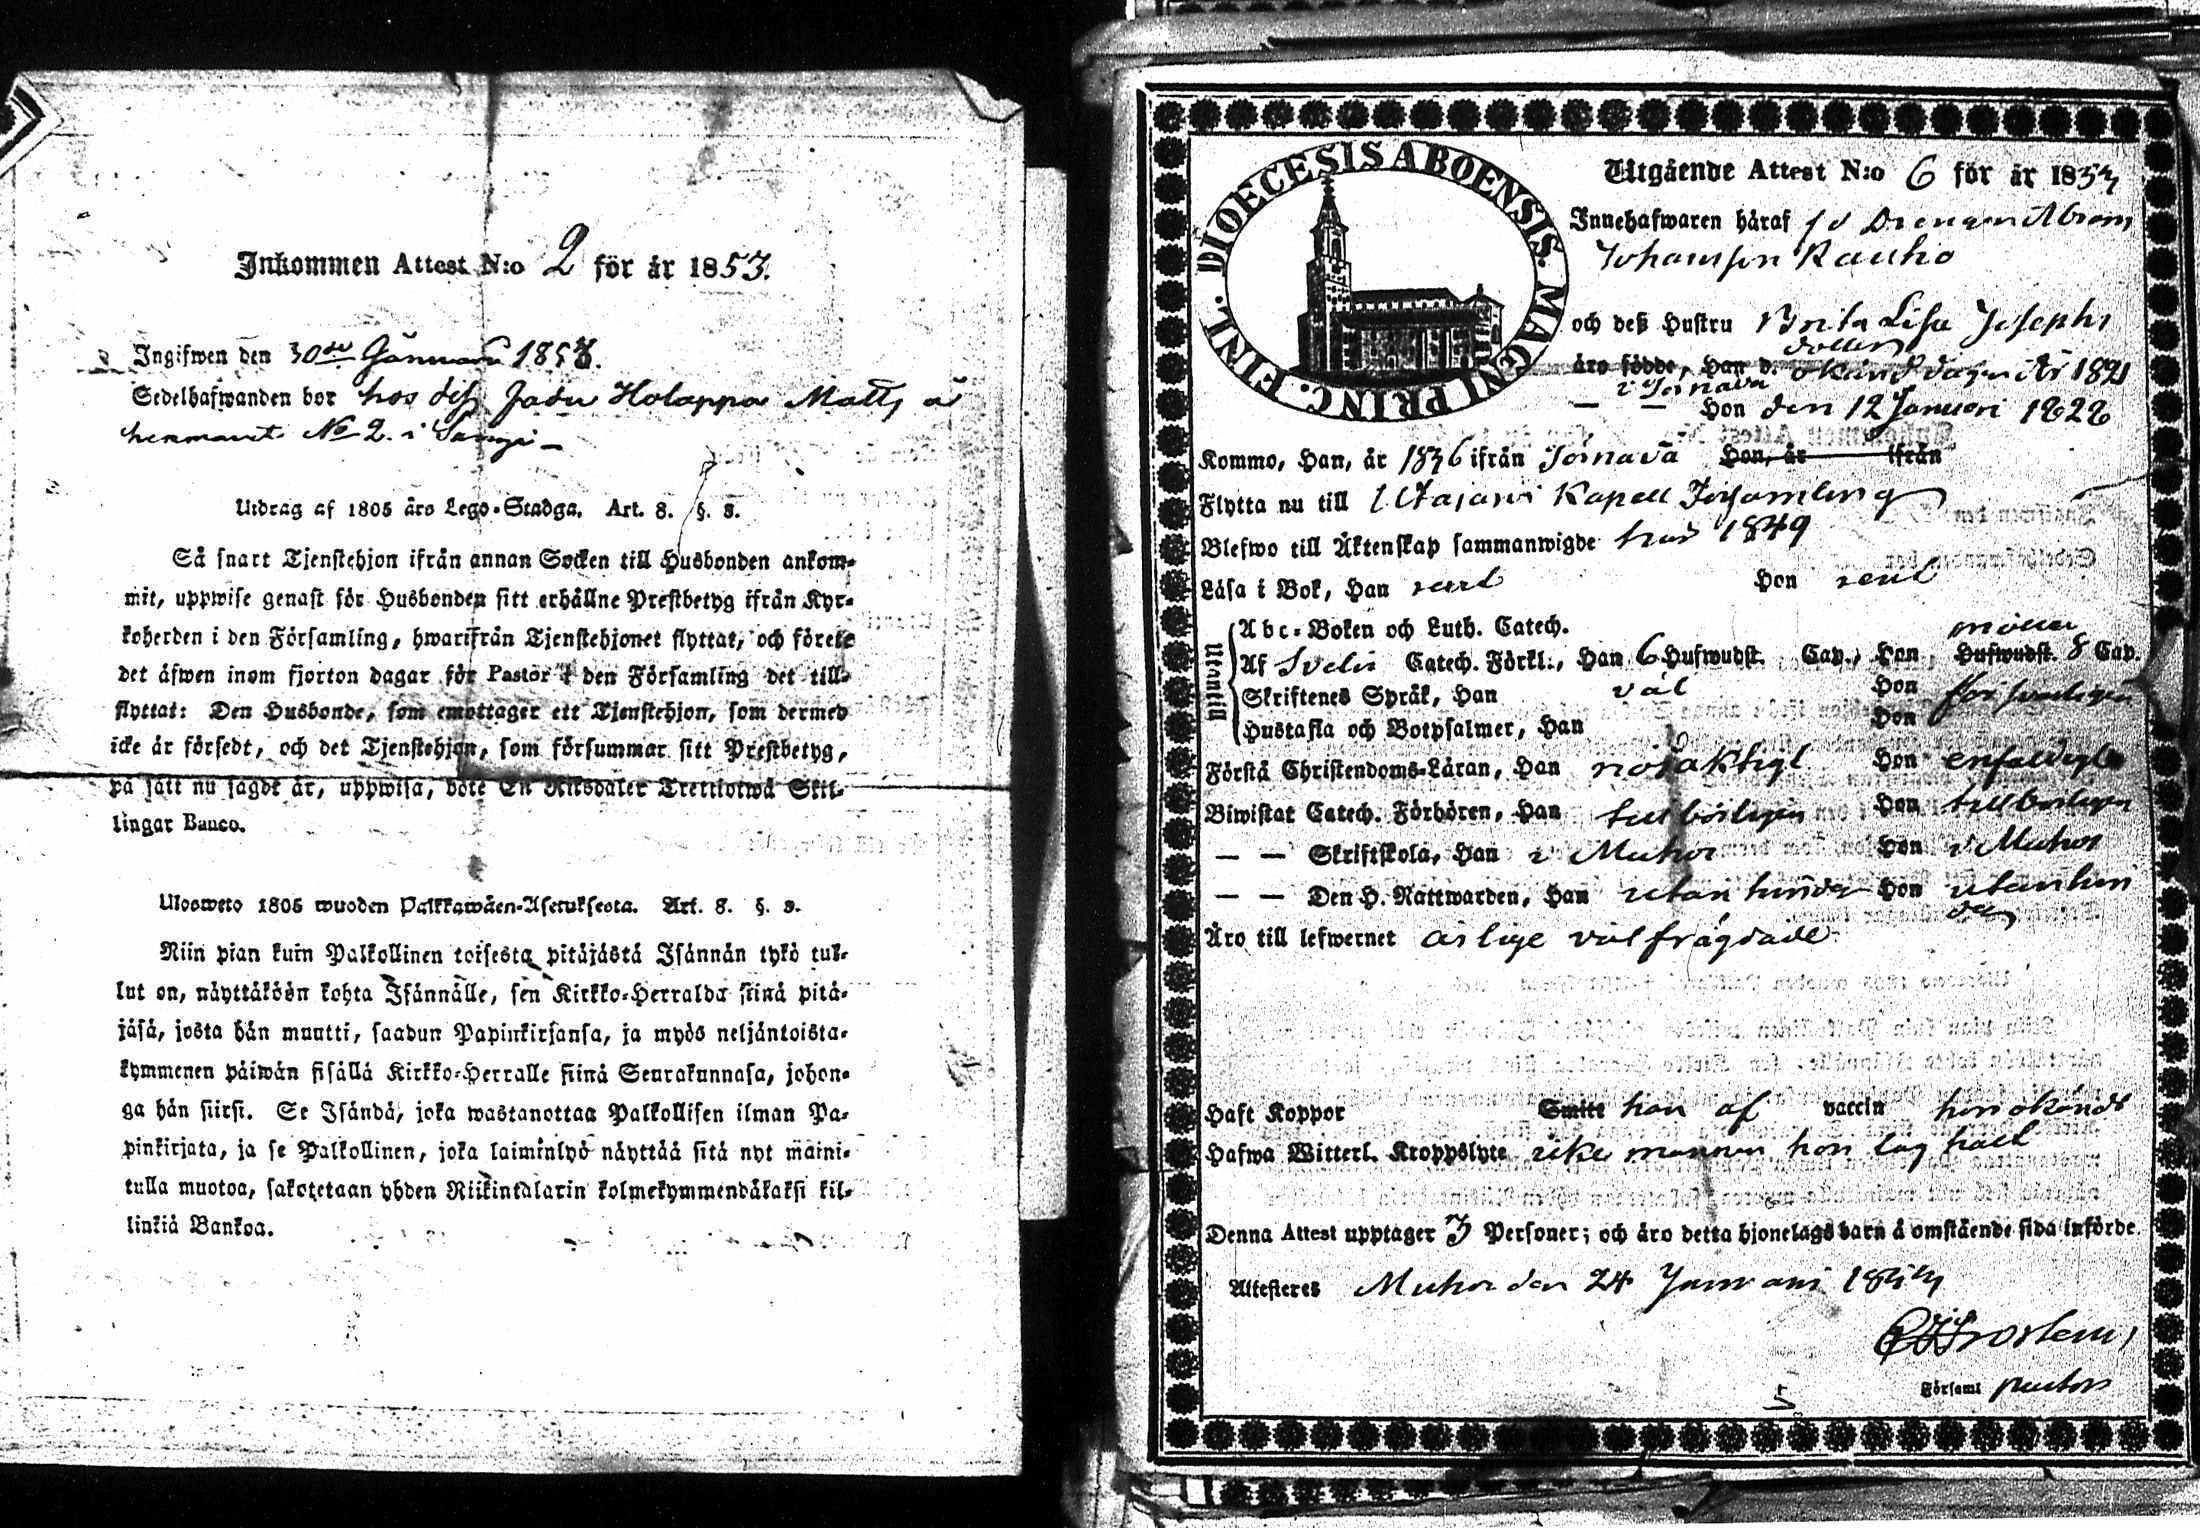 Inkommen Attest N:o 2 för år 1853.
Ingifwen den 30de Januari 1853.
Sedelhafwanden bor hos dess fader Holappa Matts å
hemmanet No 2. i Sangi
Utdrag af 1805 års Lego-Stadga. Art. 8. §. 8.
Så snart Tjenstehjon ifrån annan Socken till Husbonden ankom-
mit, uppwise genast för Husbonden sitt erhållne Prestbetyg ifrån Kyr-
koherden i den Församling, hwarifrån Tjenstehjonet flyttat, och förete
det äfwen inom fjorton dagar för Pastor i den Församling det till-
flyttat: Den Husbonde, som emottager ett Tjenstehjon, som dermed
icke är försedt, och det Tjenstehjon, som försummar sitt Prestbetyg,
på sätt nu sagdt är, uppwisa, böte En Riksdaler Trettiotwå Skil-
lingar Banco.
Ulosweto 1805 wuoden Palkkawäen-Asetuksesta. Art. 8. §. 8.
Niin pian kuin Palkollinen toisesta pitäjästä Isännän tykö tul-
lut on, näyttäköön kohta Isännälle, sen Kirkko-Herralda siinä pitä-
jäsä, josta hän muutti, saadun Papinkirjansa, ja myös neljäntoista-
kymmenen päiwän sisällä Kirkko-Herralle siinä Seurakunnasa, johon-
ga hän siirsi. Se Isändä, joka wastanottaa Palkollisen ilman Pa-
pinkirjata, ja se Palkollinen, joka laiminlyö näyttää sitä nyt maini-
tulla muotoa, sakotetaan yhden Riikintalarin kolmekymmendäkaksi kil-
linkiä Bankoa.
DIOECESIS ABOENSIS. MAGNI PRINC. FINL.
Utgående Attest N:o 6 för år 1853
Innehafwaren häraf Drengen Abram
Johansson Rautio
och deß Hustru Brita Lisa Josephs
dotter
äro födde, Han d. okänd dag i År 1821
— — Hon den 12 Januari 1828
Kommo, Han, år 1836 ifrån Hon, år ifrån
Flytta nu till Utajärvi Kapell Församling
Blefwo till Äktenskap sammanwigde här 1849
Läsa i Bok, Han rent Hon rent
Utantill
Abc-Boken och Luth. Catech.
Af Svebelii Catech. Förkl., Han 6 Hufwudst. Cap., Hon Hufwudst. 8 Cap.
Skriftenes Språk, Han väl Hon försvarligen
Hustafla och Botpsalmer, Han Hon
Förstå Christendoms-Läran, Han nöjaktigt Hon enfaldigt
Biwistat Catech. Förhören, Han tillbörligen Hon tillbörligen
— — Skriftskola, Han i Muhos Hon i Muhos
— — Den H. Nattwarden, Han utan hinder Hon utan hin
der
Äro till lefwernet ärlige välfrägdade
Haft Koppor Smitt han af vaccin hon okändt
Hafwa Witterl. Kroppslyte icke mannen hon låg halt
Denna Attest upptager 3 Personer; och äro detta hjonelags barn å omstående sida införde.
Attesteres Muhos den 24 Januari 1853
Församl pastor